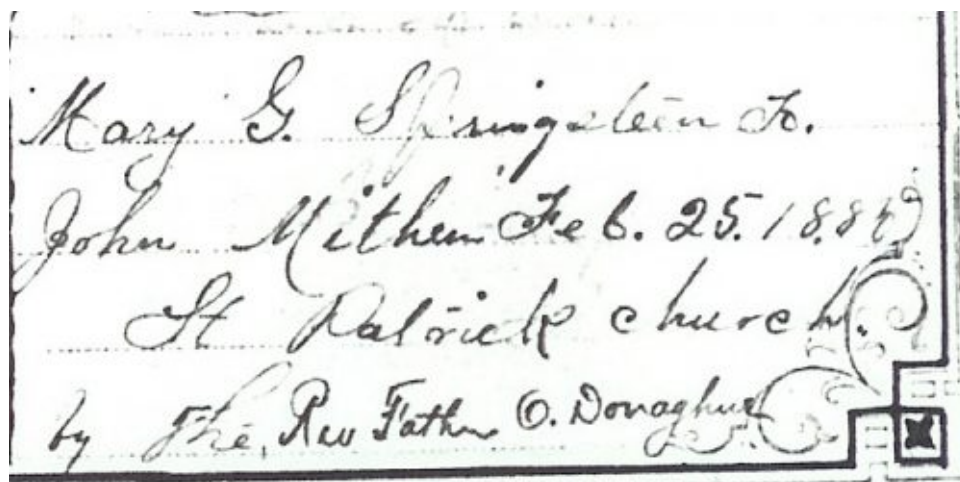 Mary G. Springsteen To.
John Mithen Feb. 25. 188
St Patrick church.
by The, Rev Father O. Donaghue